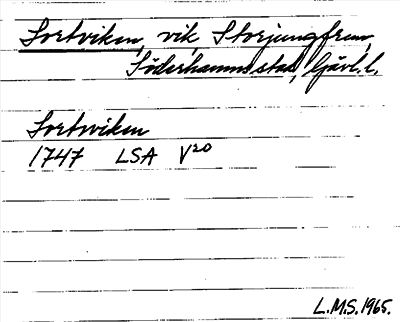 Sortviken, vik, Storjungfrun,
Söderhamns stad, Gävl. l.
Sortwiken
1747 LSA V20
L.M.S. 1965.